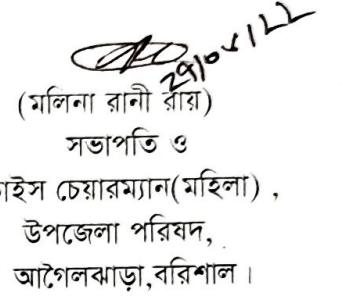 (মলিনা রানী রায়)
সভাপতি ও
চেয়ারম্যান(মহিলা) ,
উপজেলা পরিষদ,
আগৈলঝাড়া,বরিশাল।